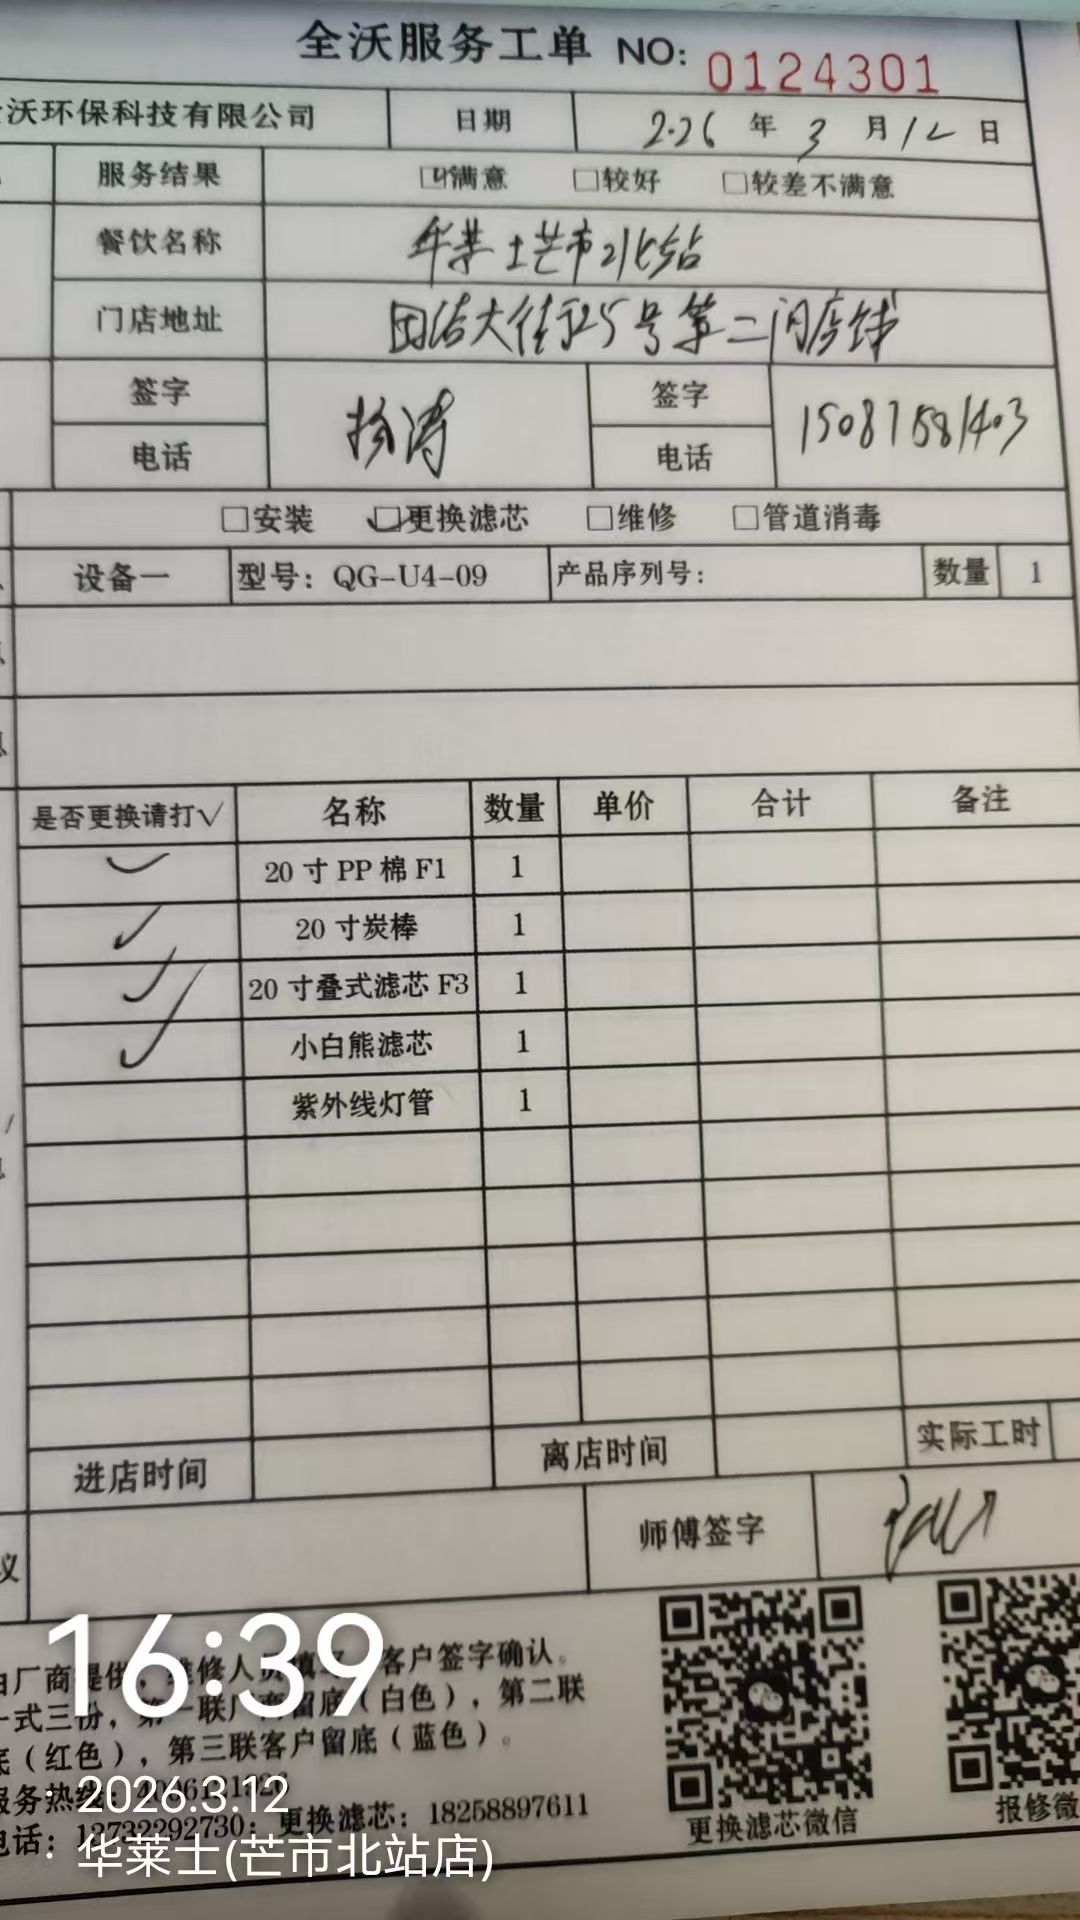 全沃服务工单 NO: 0124301
沃环保科技有限公司 日期 2.26 年 3 月 12 日
服务结果 ☑满意 □较好 □较差不满意
餐饮名称 华莱士芒市北站
门店地址 团结大街25号第二间店铺
签字 杨涛 签字
电话 电话 15087581403
□安装 ☑更换滤芯 □维修 □管道消毒
设备一 型号：QG-U4-09 产品序列号： 数量 1
是否更换请打√ 名称 数量 单价 合计 备注
✓ 20 寸 PP 棉 F1 1
✓ 20 寸炭棒 1
✓ 20 寸叠式滤芯 F3 1
✓ 小白熊滤芯 1
紫外线灯管 1
进店时间 离店时间 实际工时
议 师傅签字
由厂商提供，维修人员填写，客户签字确认。
一式三份，第一联厂商留底（白色），第二联
底（红色），第三联客户留底（蓝色）。
服务热线：
电话：13732292730；更换滤芯：18258897611
更换滤芯微信 报修微
16:39
2026.3.12
华莱士(芒市北站店)